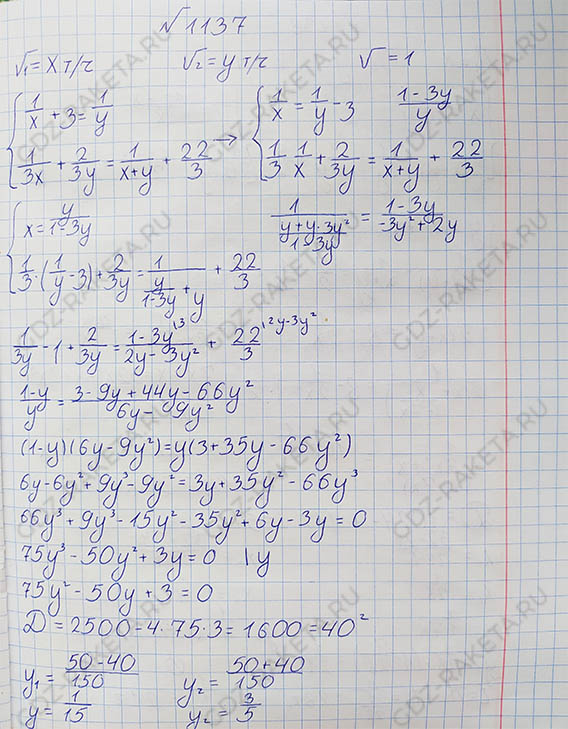 №1137
V₁ = x т/ч V₂ = y т/ч V = 1
{ 1/x + 3 = 1/y → { 1/x = 1/y - 3 (1-3y)/y
{ 1/3x + 2/3y = 1/(x+y) + 22/3 { 1/3 1/x + 2/3y = 1/(x+y) + 22/3
{ x = y/(1-3y) 1/((y+y-3y²)/(1-3y)) = (1-3y)/(-3y²+2y)
{ 1/3·(1/y-3) + 2/3y = 1/(y/(1-3y) + y) + 22/3
1/3y - 1 + 2/3y = (1-3y)\3/(2y-3y²) + 22\2y-3y²/3
(1-y)/y = (3-9y+44y-66y²)/(6y-9y²)
(1-y)(6y-9y²)=y(3+35y-66y²)
6y-6y²+9y³-9y²=3y+35y²-66y³
66y³+9y³-15y²-35y²+6y-3y=0
75y³-50y²+3y=0 |y
75y²-50y+3=0
D=2500-4·75·3=1600=40²
y₁=(50-40)/150 y₂=(50+40)/150
y=1/15 y₂=3/5
GDZ-RAKETA.RU